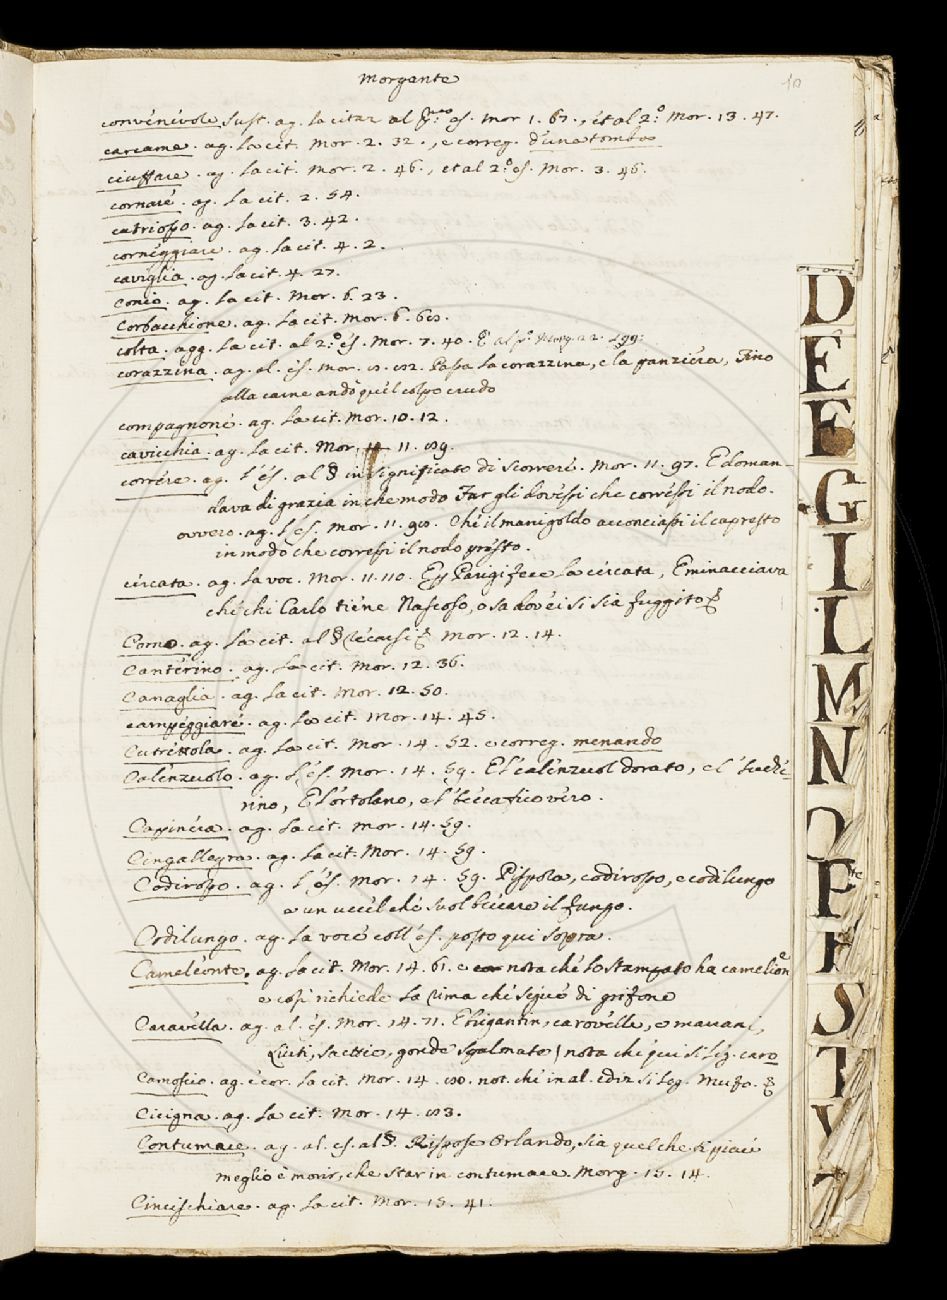 Morgante
10
convenevole Sust. ag. la citaz al p.mo es. Mor 1. 67., et al 2.o Mor. 13. 47.
carcame. ag. la cit. Mor. 2. 32., e correg. d'una tomba
ciuffare. ag. la cit. Mor. 2. 46., et al 2.o es. Mor. 3. 46.
cornare. ag. la cit. 2. 54.
catriosso. ag. la cit. 3. 42.
corneggiare. ag. la cit. 4. 2.
caviglia. ag. la cit. 4. 27.
Conio. ag. la cit. Mor. 6. 23.
Corbacchione. ag. la cit. Mor. 6.
colta. agg. la cit. al 2.o es. Mor. 7. 40. E al Morg. 22.
corazzina. ag. al. es. Mor. Passa la corazzina, e la panziera, Fino
alla carne andò quel colpo crudo
compagnone. ag. la cit. Mor. 10. 12.
cavicchia. ag. la cit. Mor. 11.
correre. ag. l'es. al § in significato di scorrere. Mor. 11. 97. E doman-
dava di grazia in che modo Far gli dovessi che corressi il nodo.
ovvero. ag. l'es. Mor. 11. Che il manigoldo acconciassi il capresto
in modo che corressi il nodo presto.
circata. ag. la voc. Mor. 11. 110. E 'n Parigi fece la circata, E minacciava
che chi Carlo tiene Nascoso, o sa dov'ei si sia fuggito
Como. ag. la cit. al § Mor. 12. 14.
Canterino. ag. la cit. Mor. 12. 36.
Canaglia. ag. la cit. Mor. 12. 50.
campeggiare. ag. la cit. Mor. 14. 45.
Cutrettola. ag. la cit. Mor. 14. 52. e correg. menando
Calenzuolo. ag. l'es. Mor. 14. 59. E 'l calenzuol dorato, e 'l luche-
rino, E l'ortolano, e 'l beccafico vero.
Capinera. ag. la cit. Mor. 14. 59.
Cingallegra. ag. la cit. Mor. 14. 59.
Codirosso. ag. l'es. Mor. 14. 59. Pispola, codirosso, e codilungo
e un uccel che suol beccare il fungo.
Codilungo. ag. la voce coll'es. posto qui sopra.
Cameleonte. ag. la cit. Mor. 14. 61. e nota che lo stampato ha camelione
e così richiede la rima che segue di grifone
Caravella. ag. al. es. Mor. 14. 71. E brigantin, carovelle, e marani,
Liuti, saettie, gonde sgalmato | nota che qui si leg. caro
Camoscio. ag. e cor. la cit. Mor. 14. not. che in al. ediz. si leg. Mufo.
Cicigna. ag. la cit. Mor. 14.
Contumace. ag. al. es. al §. Rispose Orlando, sia quel che ti piace
meglio è morir, che star in contumace. Morg. 15. 14.
Cincischiare. ag. la cit. Mor. 15. 41.
D
E
F
G
I
L
M
N
O
P
R
S
T
V
Z